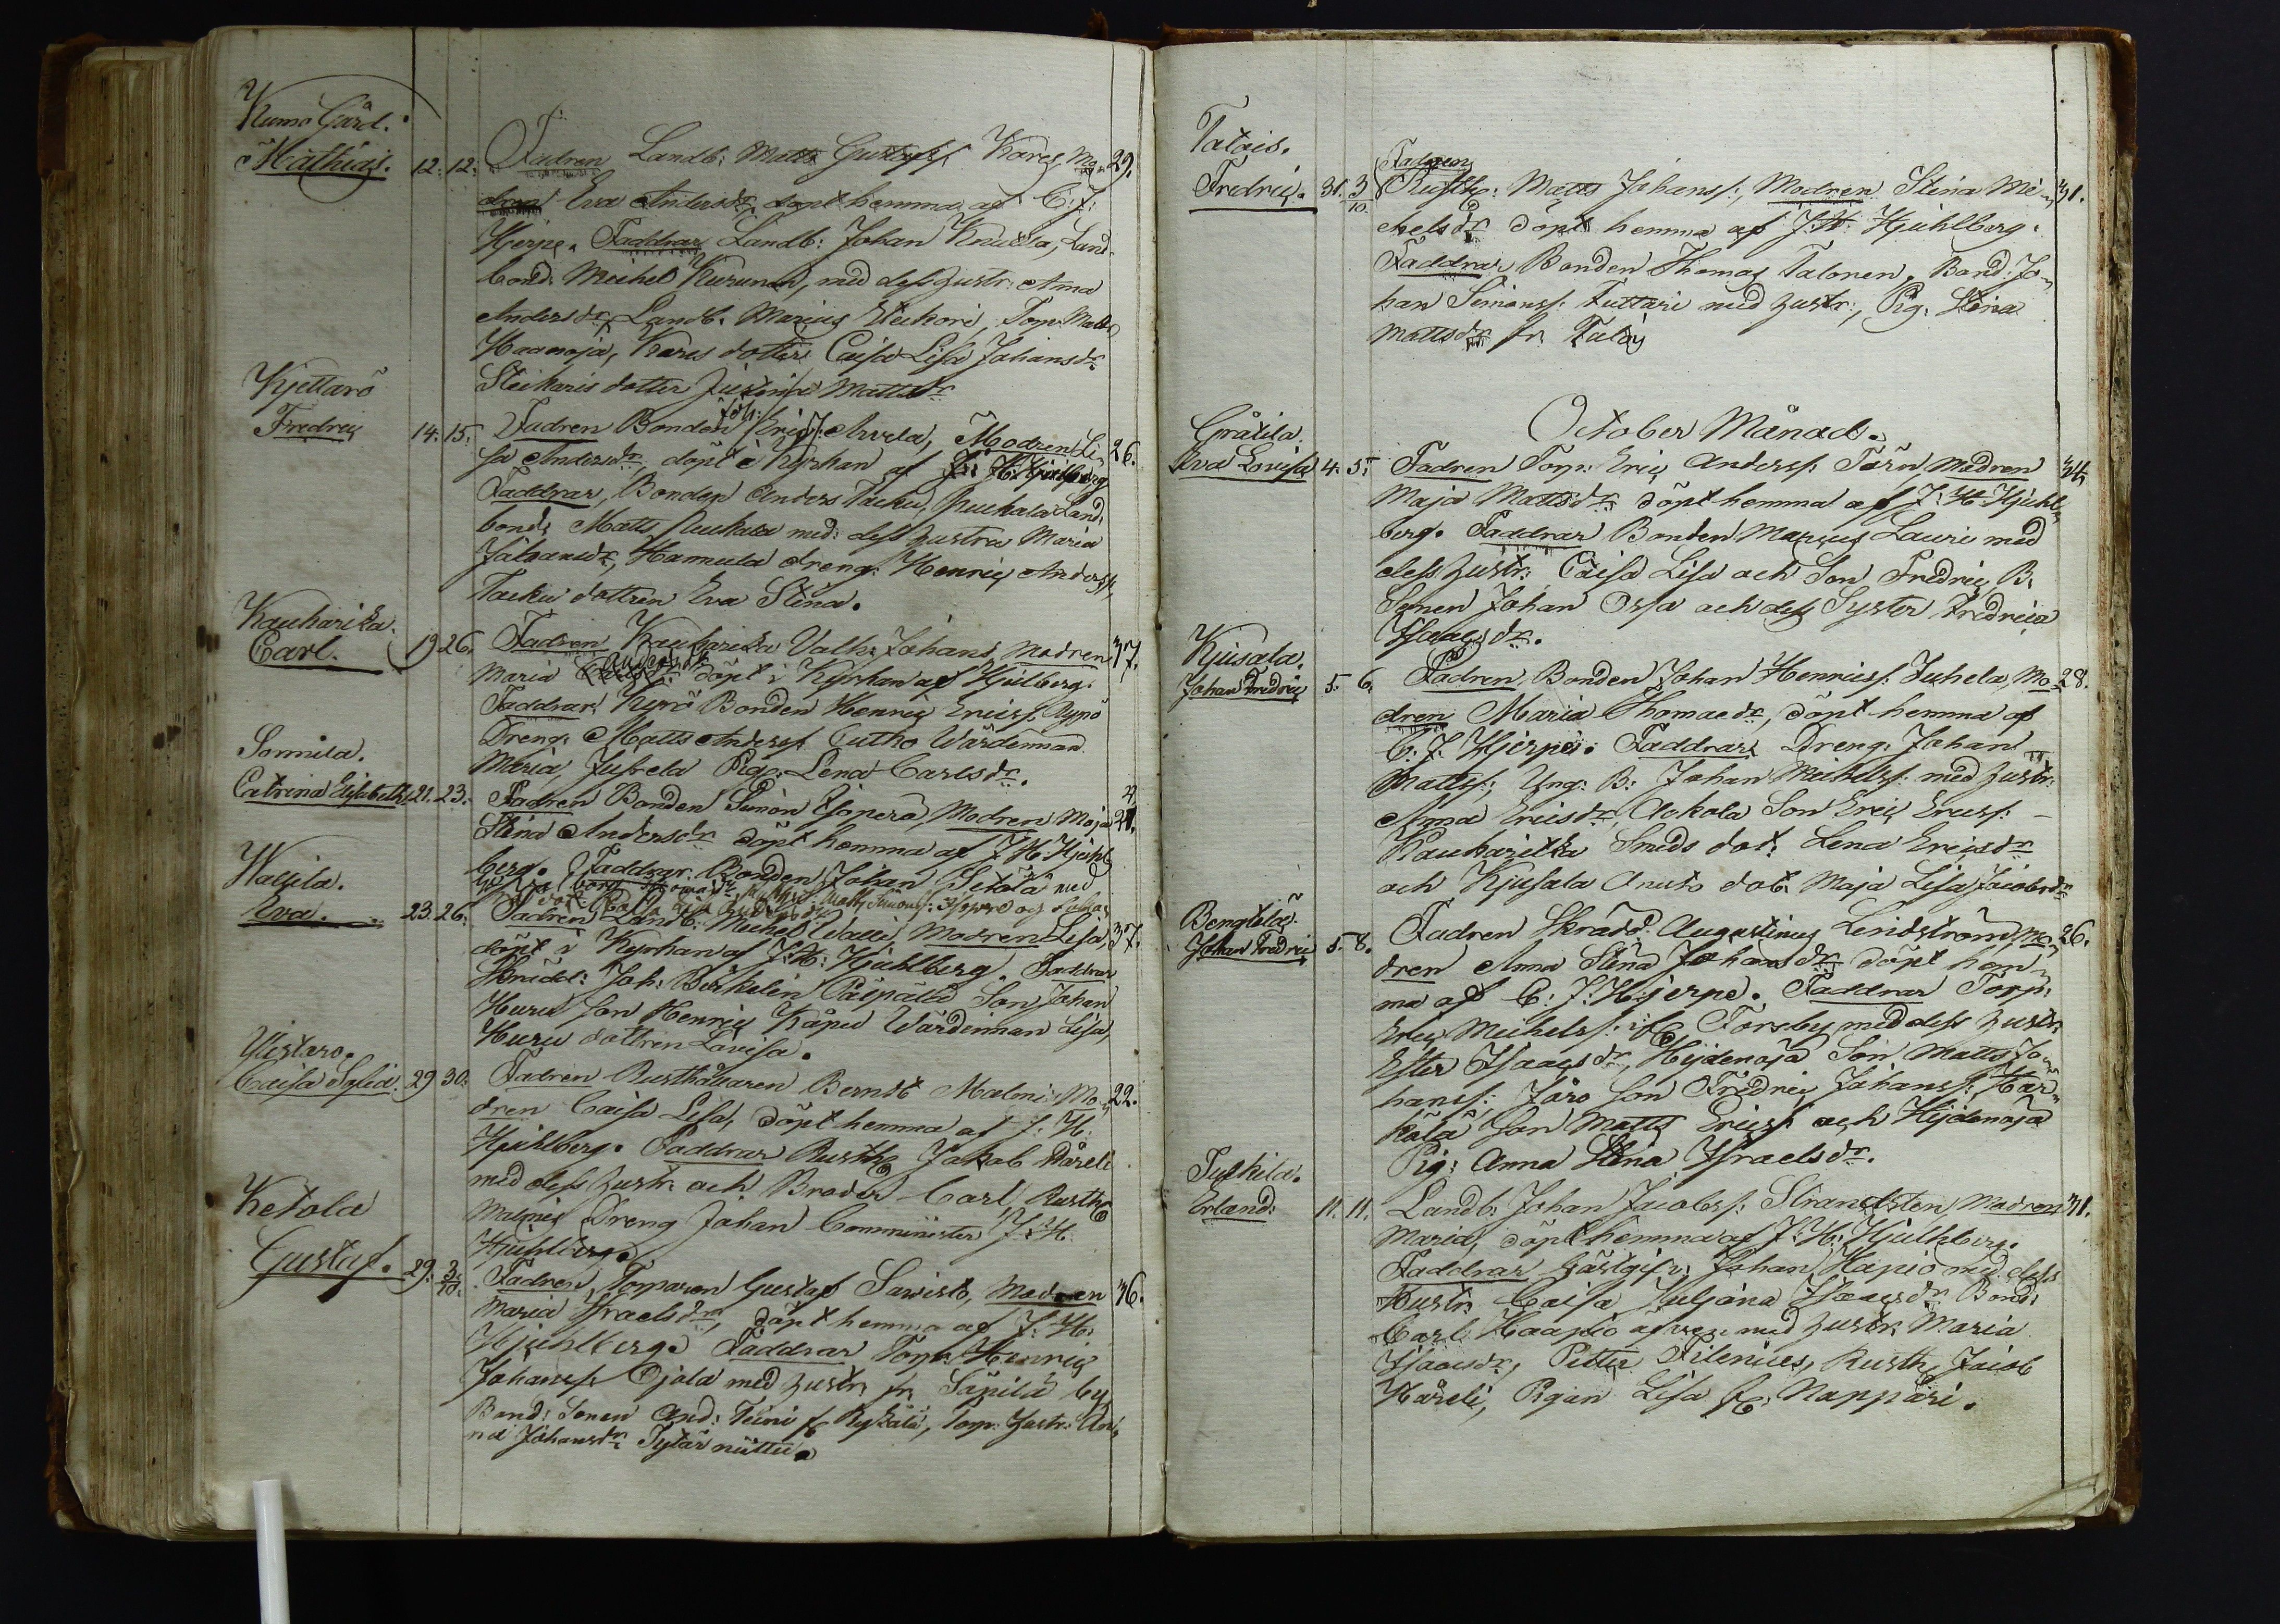 Kumo Gård.
Mathias. 12. 12. Fadren Landb: Matts Gustafss. Kares, Mo- 29.
dren Eva Andersdr. döpt hemma af C: J:
Hjerpe. Faddrar Landb: Johan Knuttila, Land-
bond: Michel Kurunen, med dess hustr: Anna
Andersdr, Landb. Marcus Steikari, Torp. Matts
Haanoja, Kares dotter Caisa Lisa Johansdr
Steikaris dotter Justina Mattsdr
Kjettarö
Fredric 14. 15. Fadren Bonden Joh: Eric J: Arvela, Modren Li- 26.
sa Andersdr döpt i Kyrkan af J: H: Hjuhlberg
Faddrar, Bonden Anders Tacku, Puukala Land-
bond: Matts Puukala med: dess hustru Maria
Johansdr, Hamula dreng: Henric Anderss.
Tacku dottren Eva Stina.
Kauharika.
Carl. 19 26. Fadren Kauharika Valb: Johans, Modren 37.
Maria Andersdr döpt i Kyrkan af Hjulberg.
Faddrar, Kyrö Bonden Henric Ericss. Rypö
Dreng: Matts Anderss. Cutho Wärdinnan
Maria, Jussela Pig: Lena Carlsdr.
Sonnila.
Catrina Elisabeth. 21. 23. Fadren Bonden Simon Isopere, Modren Maja 24
Stina Andersdr döpt hemma af J H: Hjuhl-
berg. Faddrar. Bonden Johan Setälä med
Wallila.
Eva. 23. 26. Fadren Landb: Michel Walli Modren Lisa, 37.
döpt i Kyrkan af J: H: Hjuhlberg. Faddrar
Skrädd: Joh: Birkelin Päipälä Son Johan
Huru Son Henric Käpu Wärdinnan Lisa,
Huru dottren Lovisa.
Ylistaro.
Caisa Sofia. 29 30. Fadren Rusthållaren Berndt Malmi: Mo- 22.
dren Caisa Lisa, döpt hemma af J: H:
Hjuhlberg. Faddrar Rusth: Jakob Håreli
med dess hustr: och Broder Carl, Rusth:
Malmis Dreng Johan Comminister J: H:
Hjuhlberg.
Ketola
Gustaf. 29. 3/10. Fadren, Torparen Gustaf Sawisto, Modren 36.
Maria Israelsdr, döpt hemma af J: H:
Hjuhlberg. Faddrar Torp: Henric
Johanss. Ojala med hustr: fr. Säpilä by
Bond: Sonen And: Teini fr. Ryskälä, Torp. hustr: An-
na Johansdr Tytärniittu.
Talais.
Fredric. 31. 3/10 Fadren Rusth: Matts Johanss:, Modren Stina Mi- 31.
chelsdr döpt hemma af J: H: Hjuhlberg.
Faddrar Bonden Thomas Talonen, Bond: Jo-
han Simonss: Tuttari med hustr:, Pig. Stina
Mattsdr fr. Talois
October Månad.
Gråtila.
Eva Lovisa 4. 5. Fadren Torp: Eric Anderss: Törn, Modren 34.
Maja Mattsdr döpt hemma af J: H: Hjuhl-
berg. Faddrar Bonden Marcus Lauri med
dess hustr: Caisa Lisa och Son Fredric, B:
Sonen Johan Ossa och dess Syster Fredrica
Isaacsdr.
Kjusala.
Johan Fredric 5. 6. Fadren, Bonden Johan Henricss: Juhela, Mo- 28.
dren Maria Thomaedr, döpt hemma af
C. J. Hjerpe. Faddrar, Dreng: Johan
Mattss:, Ung: B: Johan Michelss: med hustr:
Anna Ericsdr, Ackola Son Eric Ericss:
Kauharikka Smeds dot: Lena Ericsdr
och Kjusala Anuto dot: Maja Lisa Jacobsdr
Bengtelä.
Johan Fredric 5. 8. Fadren Skrädd: Augustinus Lindström, Mo- 26.
dren Anna Stina Johansdr döpt hem-
ma af C: J: Hjerpe. Faddrar Torp:
Eric Michelss: ifr. Forsby med dess hustr:
Ester Isaacsdr, Hijdenoja Son Matts Jo-
hanss:, Järo Son Fredric Johanss:, Här-
kälä Son Matts Ericss: och Hijdenoja
Pig: Anna Stina Israelsdr.
Tulkila.
Erland: 11. 11. Landb: Johan Jacobss: Strandsten, Modren 31.
Maria, döpt hemma af J: H: Hjulhberg.
Faddrar Gästgif: Johan Hapio med dess
Hustr: Caisa Juliana Isaacsdr Bond:
Carl Haapio med hustr: Maria
Isaacsdr, Petter Filenius, Rusth: Jacob
Håreli, Pigan Lisa fr. Nappari.